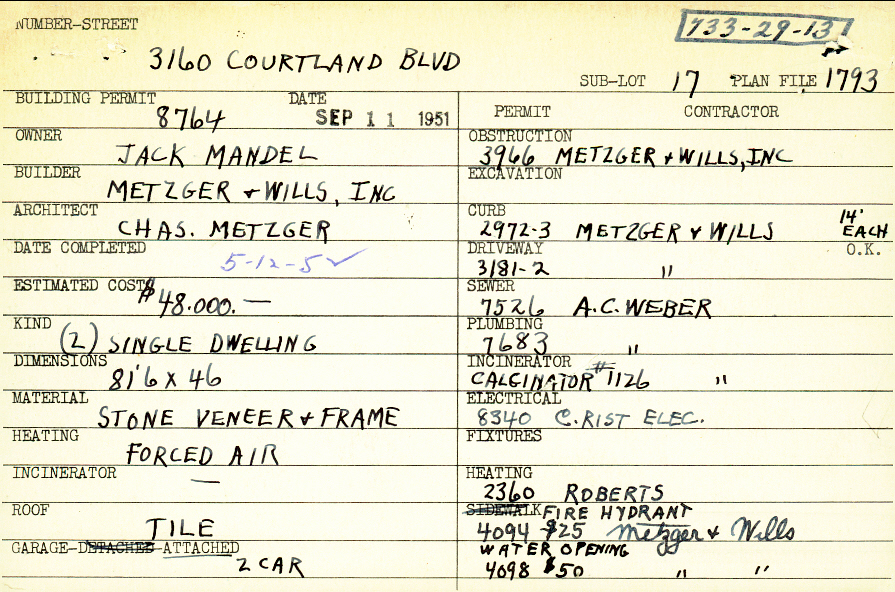 NUMBER-STREET
733-29-13
3160 COURTLAND BLVD
SUB-LOT 17 PLAN FILE 1793
BUILDING PERMIT DATE
8764 SEP 11 1951
OWNER
JACK MANDEL
BUILDER
METZGER & WILLS, INC
ARCHITECT
CHAS. METZGER
DATE COMPLETED
5-12-5
ESTIMATED COST
$48.000.—
KIND
(2) SINGLE DWELLING
DIMENSIONS
81'6 X 46
MATERIAL
STONE VENEER & FRAME
HEATING
FORCED AIR
INCINERATOR
—
ROOF
TILE
GARAGE-DETACHED-ATTACHED
2 CAR
PERMIT CONTRACTOR
OBSTRUCTION
3966 METZGER & WILLS, INC
EXCAVATION
CURB
2972-3 METZGER & WILLS 14' EACH
DRIVEWAY O.K.
3181-2 "
SEWER
7526 A.C. WEBER
PLUMBING
7683 "
INCINERATOR
CALCINATOR #1126 "
ELECTRICAL
8340 C. RIST ELEC.
FIXTURES
HEATING
2360 ROBERTS
SIDEWALK FIRE HYDRANT
4094 $25 Metzger & Wills
WATER OPENING
4098 $50 " "